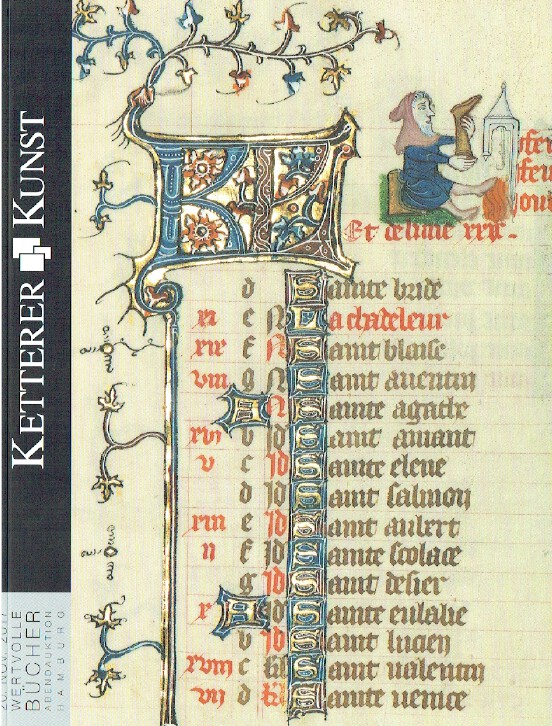 KETTERER KUNST
20. NOV. 2017
WERTVOLLE
BÜCHER
ABENDAUKTION
HAMBURG
KL
Et de lune xxix.
d Sainte bride
xi e N La chãdeleur
xix f N Saint blaise
viii g N Saint auentin
A N Sainte agathe
xvi b Id Saint amant
v c Id Sainte elene
d Id Saint salmon
xiii e Id Saint aubert
ii f Id Sainte scolace
g Id Saint desier
x A Id Sainte eulalie
b Id Saint lucien
xviii c kl Saint ualentin
vii d kl Sainte uenice